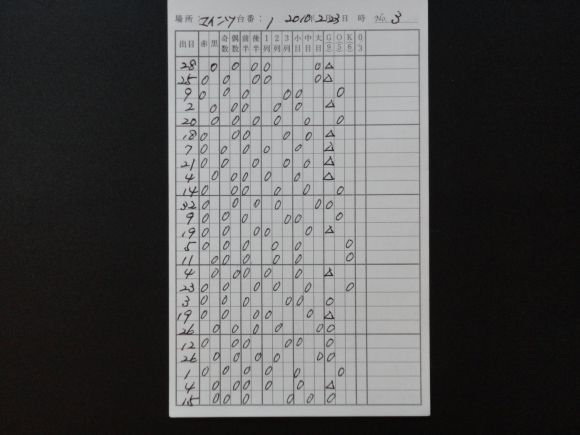 場所: マインツ 台番: 1 2010年2月23日 時 No. 3
出目 赤 黒 奇数 偶数 前半 後半 1列 2列 3列 小目 中目 大目 G8 O5 K6 03
28 0 0 0 0 0 △
25 0 0 0 0 0 △
9 0 0 0 0 0 0
2 0 0 0 0 0 △
20 0 0 0 0 0 0
18 0 0 0 0 0 △
7 0 0 0 0 0 △
21 0 0 0 0 0 △
4 0 0 0 0 0 △
14 0 0 0 0 0 0
32 0 0 0 0 0 0
9 0 0 0 0 0 0
19 0 0 0 0 0 △
5 0 0 0 0 0 0
11 0 0 0 0 0 0
4 0 0 0 0 0 △
23 0 0 0 0 0 0
3 0 0 0 0 0 0
19 0 0 0 0 0 △
26 0 0 0 0 0 0
12 0 0 0 0 0 0
26 0 0 0 0 0 0
1 0 0 0 0 0 0
4 0 0 0 0 0 △
15 0 0 0 0 0 0